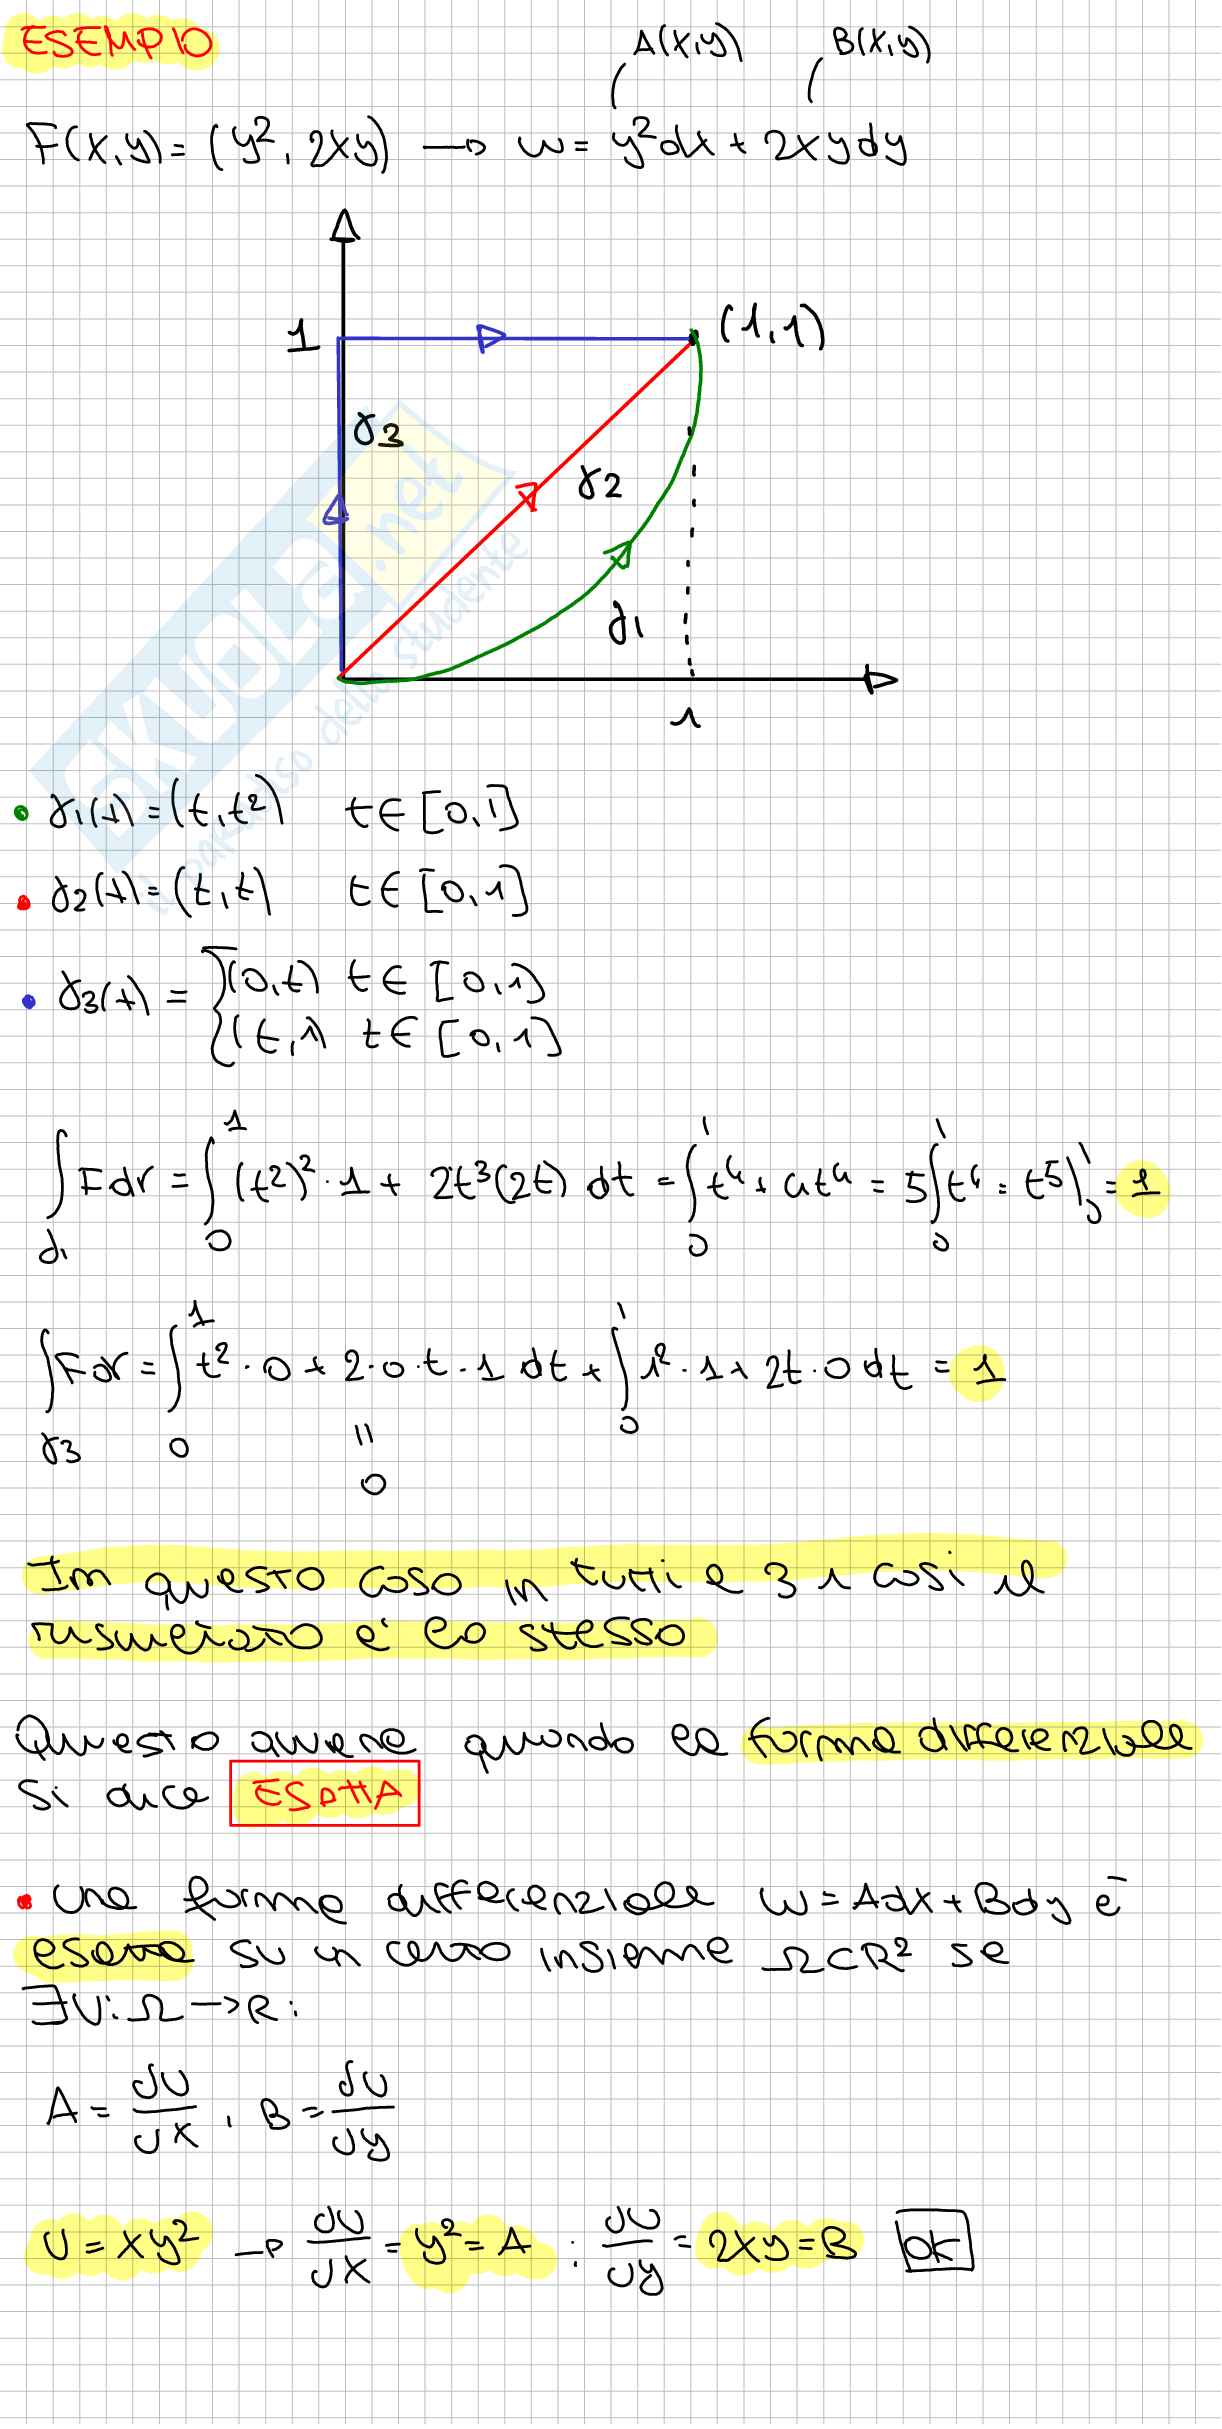 ESEMPIO
A(x,y) B(x,y)
F(x,y) = (y², 2xy) → ω = y²dx + 2xydy
1
(1,1)
γ3
γ2
γ1
1
SKUOLA.net
il paradiso dello studente
• γ1(t) = (t, t²) t∈[0,1]
• γ2(t) = (t, t) t∈[0,1]
• γ3(t) = { (0,t) t∈[0,1)
(t,1) t∈[0,1]
∫γ1 Fdr = ∫₀¹ (t²)²·1 + 2t³(2t) dt = ∫₀¹ t⁴ + 4t⁴ = 5∫₀¹ t⁴ = t⁵|₀¹ = 1
∫γ3 Fdr = ∫₀¹ t²·0 + 2·0·t·1 dt + ∫₀¹ 1²·1 + 2t·0 dt = 1
=
0
In questo caso in tutti e 3 i casi il
risultato è lo stesso
Questo avviene quando la forma differenziale
si dice ESATTA
• Una forma differenziale ω = Adx + Bdy è
esatta su un certo insieme Ω⊂R² se
∃U: Ω → R:
A = ∂U/∂x , B = ∂U/∂y
U = xy² → ∂U/∂x = y² = A ; ∂U/∂y = 2xy = B OK